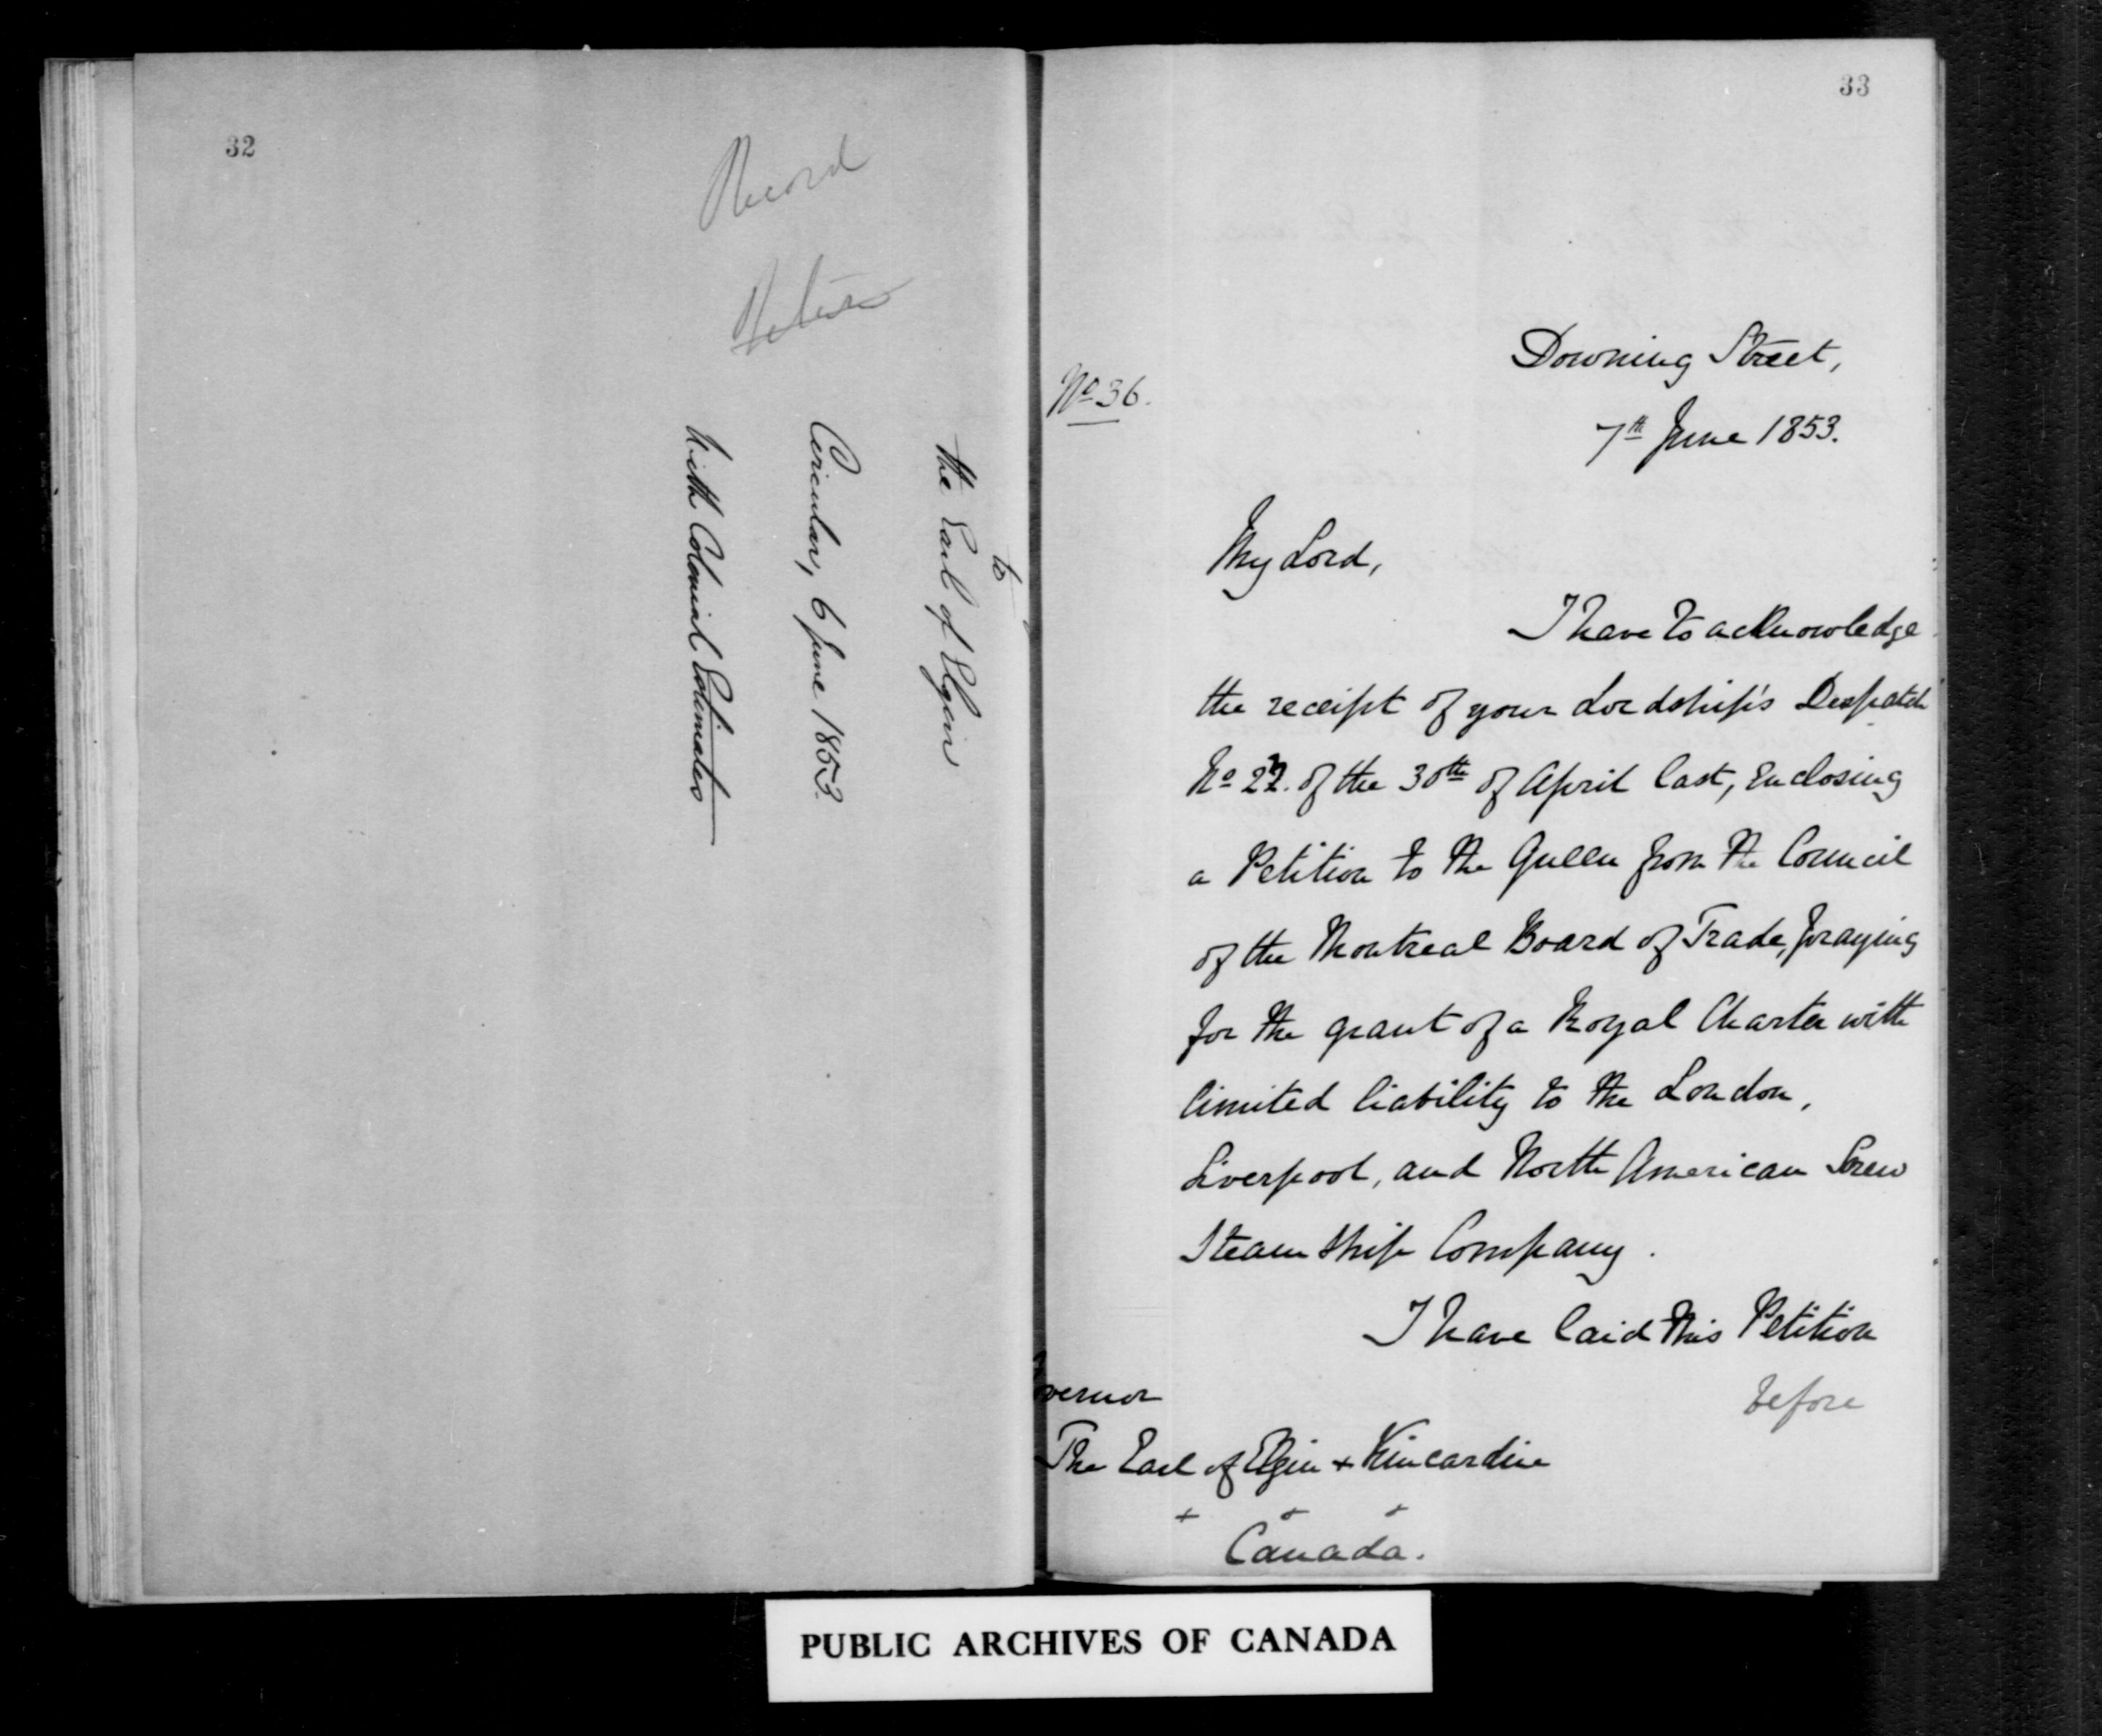 32
Record
to
The Earl of Elgin
Circular, 6 June 1853.
With Colonial Estimates
33
Downing Street,
No 36.
7th June 1853.
My Lord,
I have to acknowledge
the receipt of your Lordship's Despatch
No of the 30th of April last, enclosing
a Petition to the Queen from the Council
of the Montreal Board of Trade, praying
for the grant of a Royal Charter with
limited liability to the London,
Liverpool, and North American Screw
Steam Ship Company.
I have laid this Petition
before
The Earl of Elgin + Kincardine
+ + +
Canada.
PUBLIC ARCHIVES OF CANADA